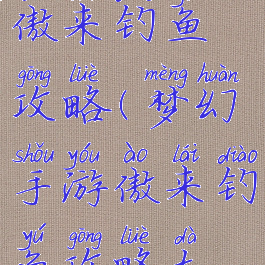 傲来钓鱼
gōng lüè mèng huàn
攻略(梦幻
shǒu yóu ào lái diào
手游傲来钓
yú gōng lüè dà
鱼攻略大